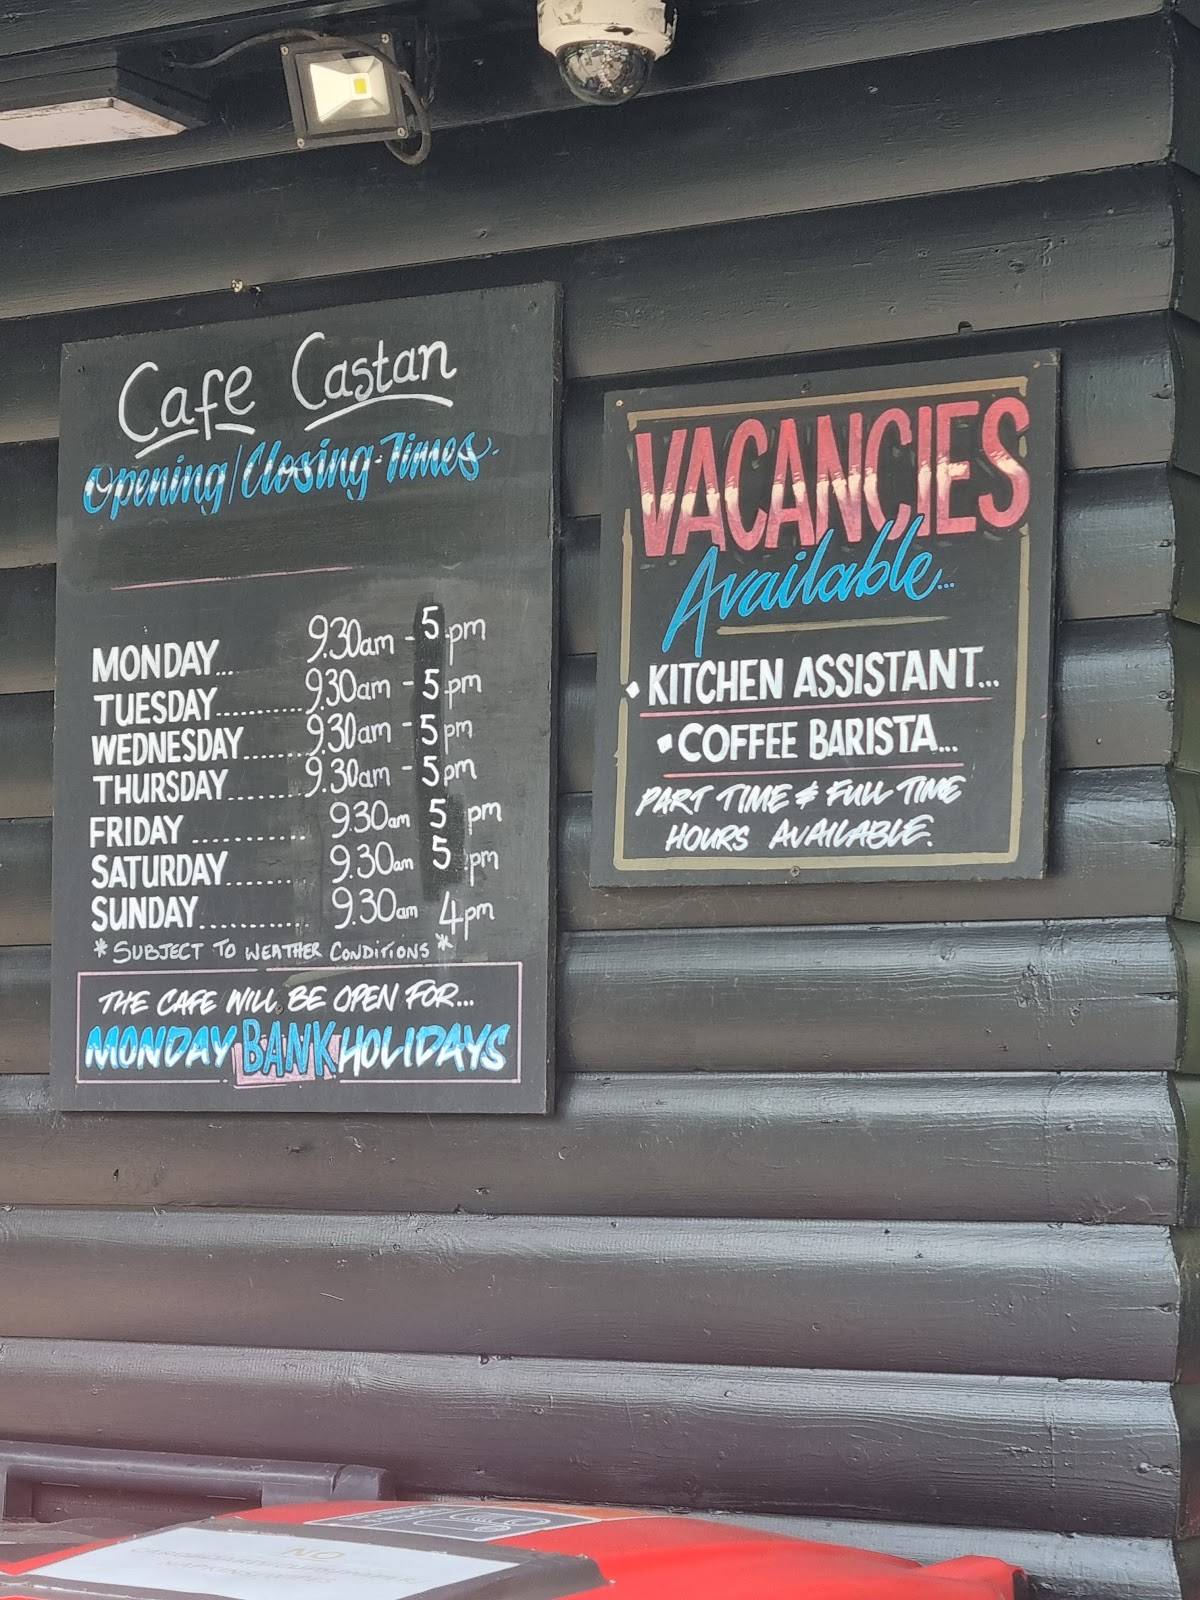 Cafe Castan
Opening/Closing-Times
MONDAY... 9.30am - 5 pm
TUESDAY.......... 9.30am - 5 pm
WEDNESDAY...... 9.30am - 5 pm
THURSDAY....... 9.30am - 5 pm
FRIDAY .......... 9.30am 5 pm
SATURDAY....... 9.30am 5 pm
SUNDAY.......... 9.30am 4pm
* SUBJECT TO WEATHER CONDITIONS *
THE CAFE WILL BE OPEN FOR...
MONDAY BANK HOLIDAYS
VACANCIES
Available...
• KITCHEN ASSISTANT...
• COFFEE BARISTA...
PART TIME & FULL TIME
HOURS AVAILABLE.
NO